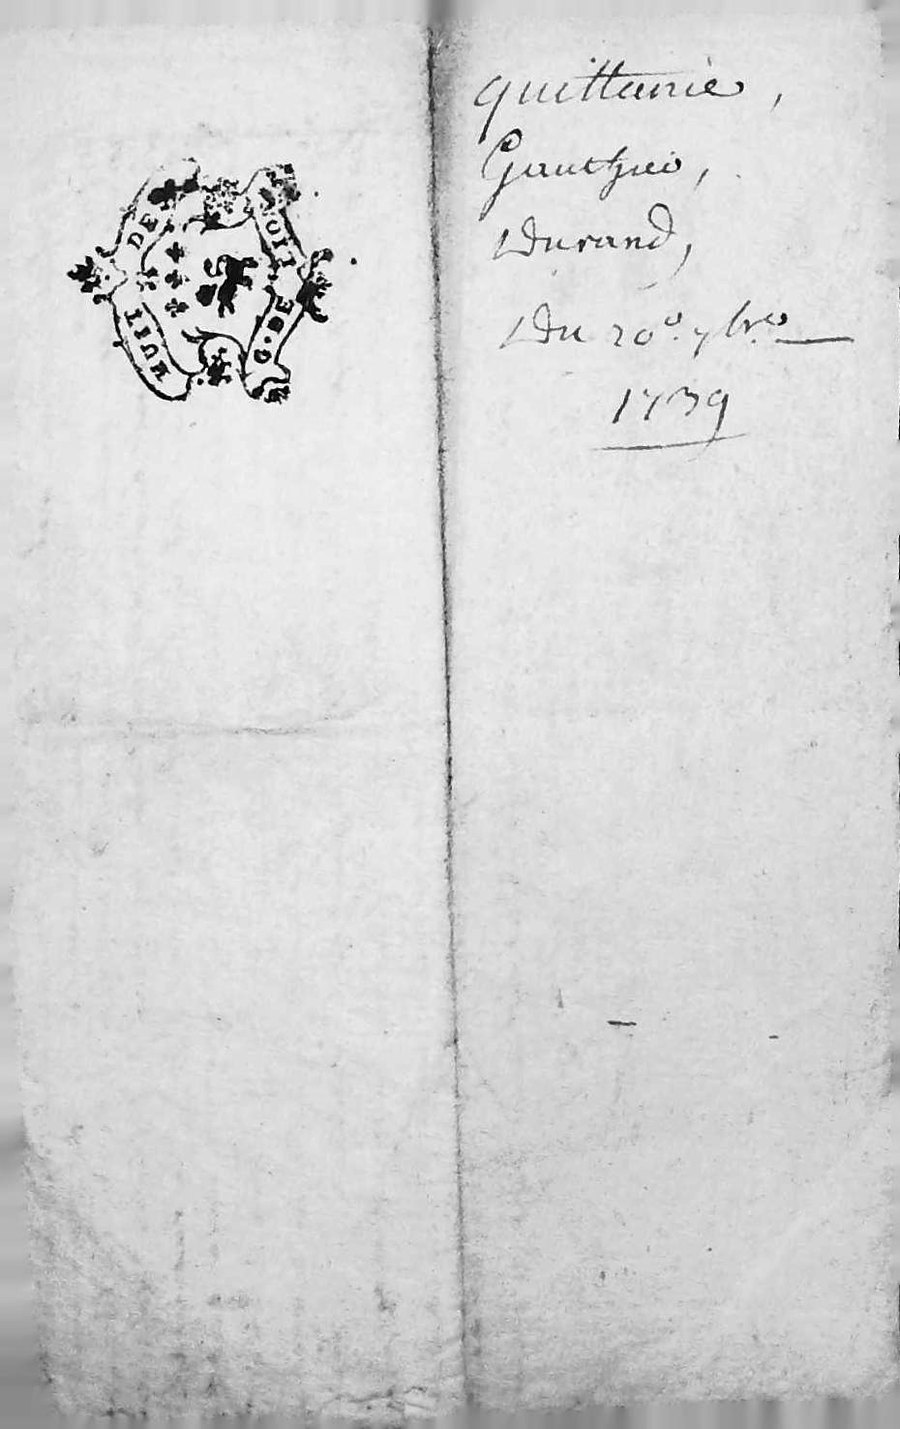 G. DE
HUIT
DE
quittance,
Gauthier,
Durand,
Du 20e. 7bre.
1739